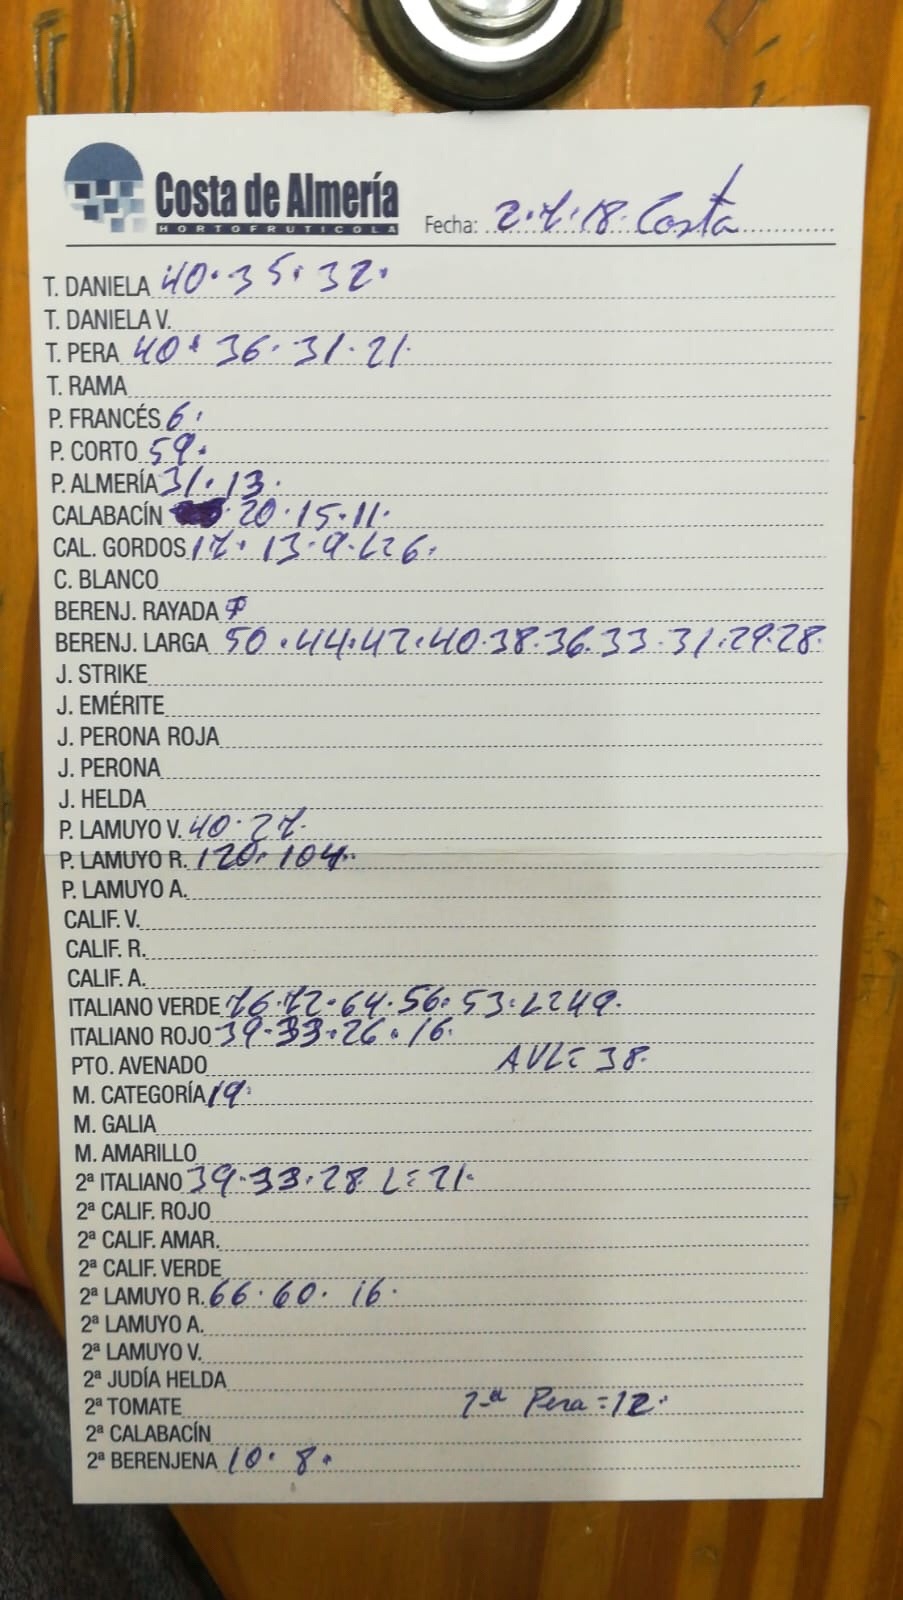 Costa de Almería
HORTOFRUTICOLA
Fecha: 2.7.18. Costa
T. DANIELA 40. 35. 32.
T. DANIELA V.
T. PERA 40. 36. 31. 21.
T. RAMA
P. FRANCÉS 6.
P. CORTO 59.
P. ALMERÍA 31. 13.
CALABACÍN 20. 15. 11.
CAL. GORDOS 17. 13. 9. L=6.
C. BLANCO
BERENJ. RAYADA
BERENJ. LARGA 50. 44. 42. 40. 38. 36. 33. 31. 29. 28.
J. STRIKE
J. EMÉRITE
J. PERONA ROJA
J. PERONA
J. HELDA
P. LAMUYO V. 40. 27.
P. LAMUYO R. 120. 104.
P. LAMUYO A.
CALIF. V.
CALIF. R.
CALIF. A.
ITALIANO VERDE 76. 72. 64. 56. 53. L=49.
ITALIANO ROJO 39. 33. 26. 16.
PTO. AVENADO AVL= 38.
M. CATEGORÍA 19.
M. GALIA
M. AMARILLO
2ª ITALIANO 39. 33. 28 L=21.
2ª CALIF. ROJO
2ª CALIF. AMAR.
2ª CALIF. VERDE
2ª LAMUYO R. 66. 60. 16.
2ª LAMUYO A.
2ª LAMUYO V.
2ª JUDÍA HELDA
2ª TOMATE 2ª Pera = 12.
2ª CALABACÍN
2ª BERENJENA 10. 8.